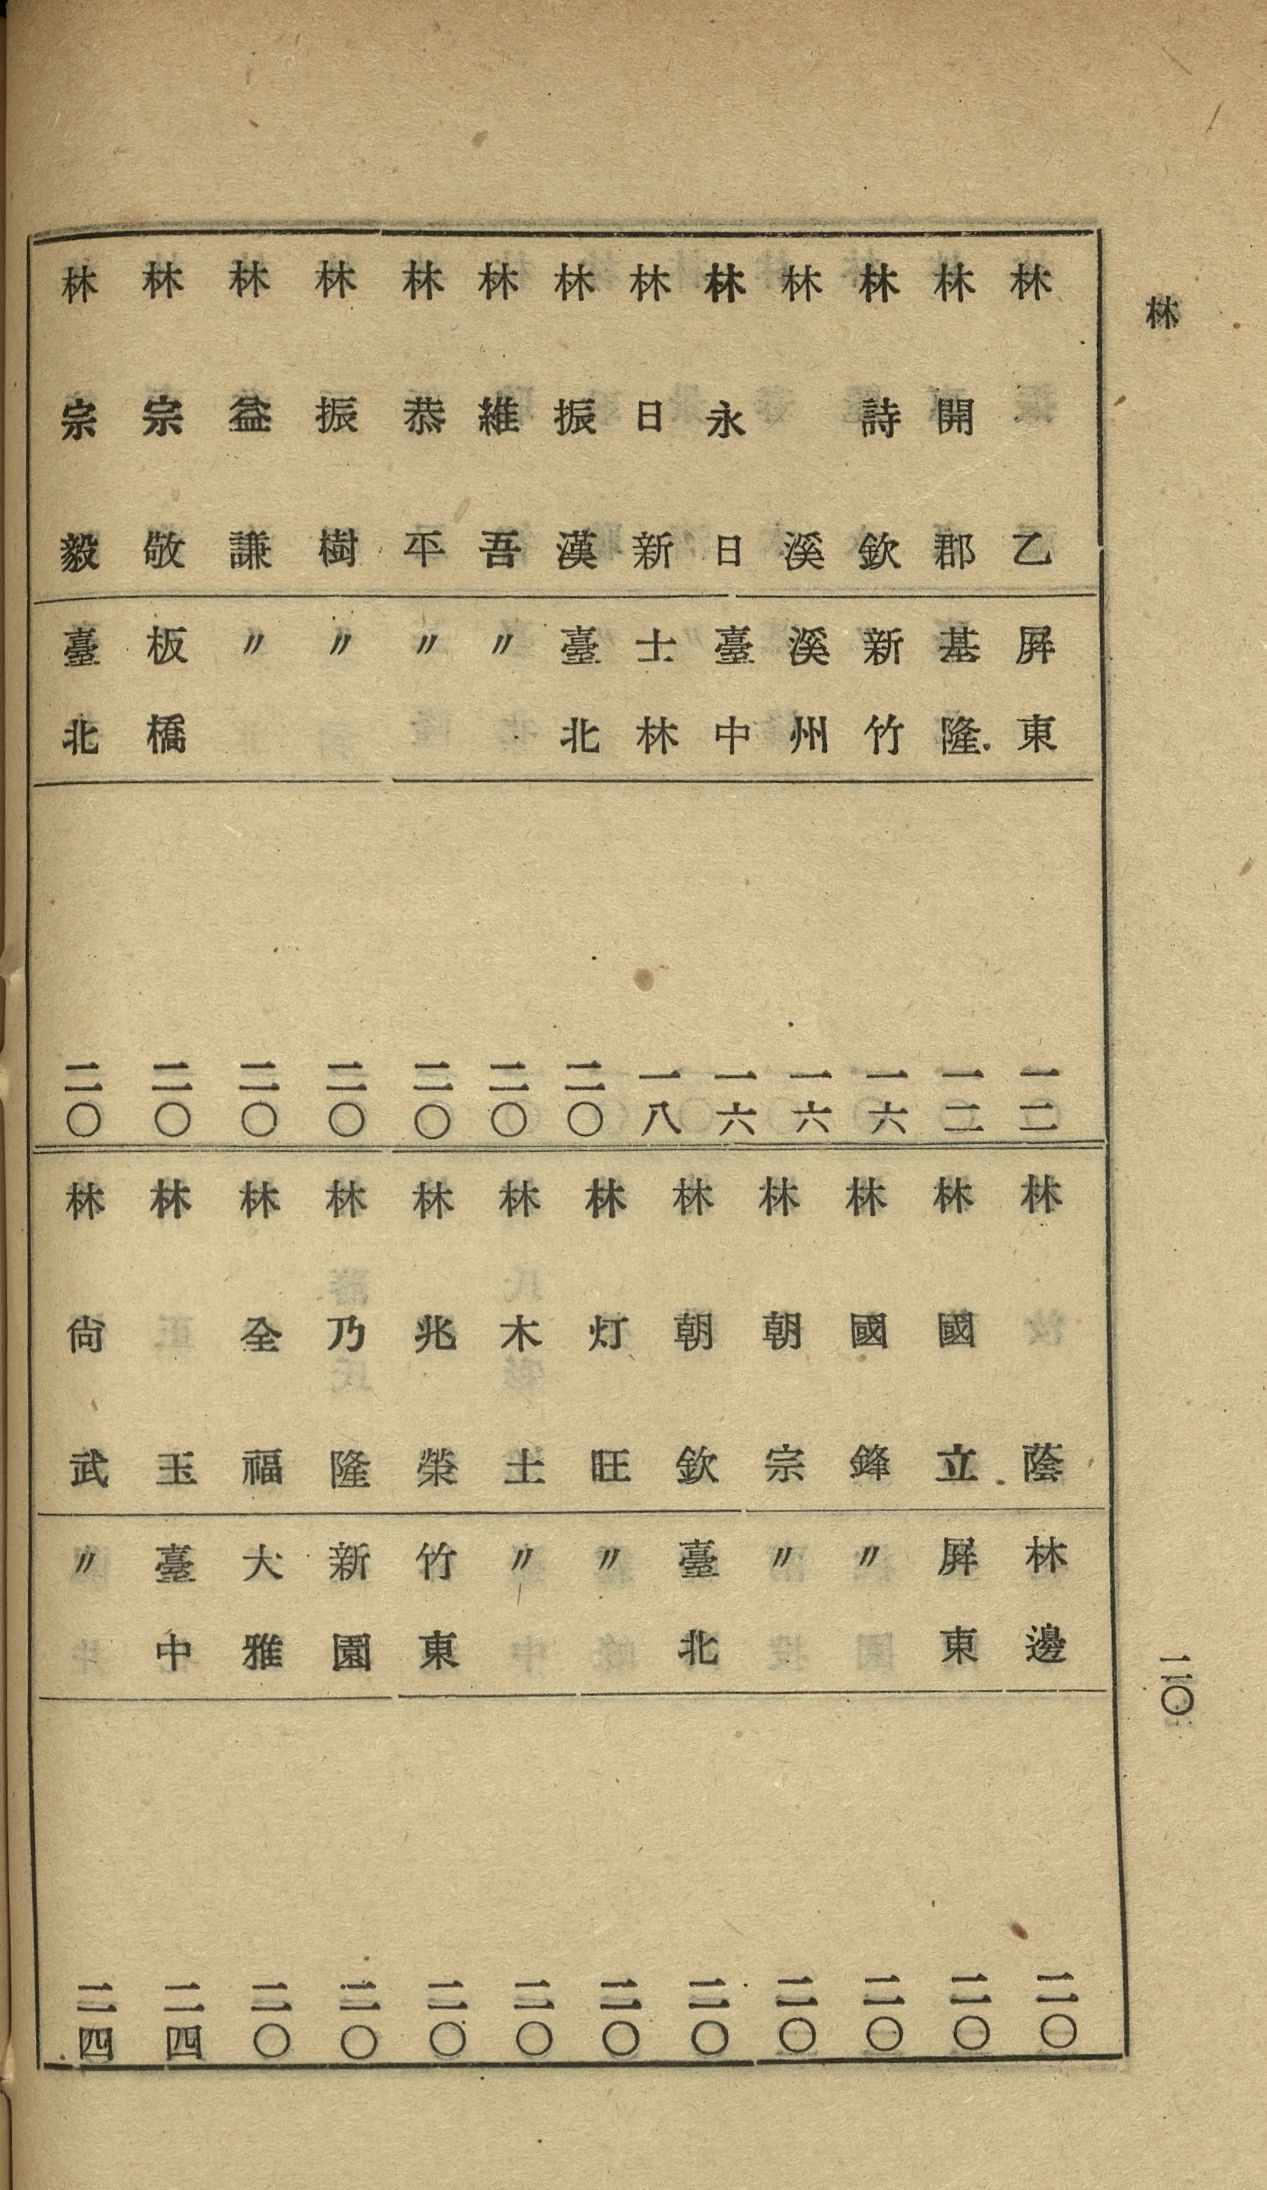 林
二〇
林乙 屏東 一二
林開郡 基隆 一二
林詩欽 新竹 一六
林溪 溪州 一六
林永日 臺中 一六
林日新 士林 一八
林振漢 臺北 二〇
林維吾 〃 二〇
林恭平 〃 二〇
林振樹 〃 二〇
林益謙 〃 二〇
林宗敬 板橋 二〇
林宗毅 臺北 二〇
林蔭 林邊 二〇
林國立 屏東 二〇
林國鋒 〃 二〇
林朝宗 〃 二〇
林朝欽 臺北 二〇
林灯旺 〃 二〇
林木土 〃 二〇
林兆榮 竹東 二〇
林乃隆 新園 二〇
林全福 大雅 二〇
林玉 臺中 二四
林尙武 〃 二四